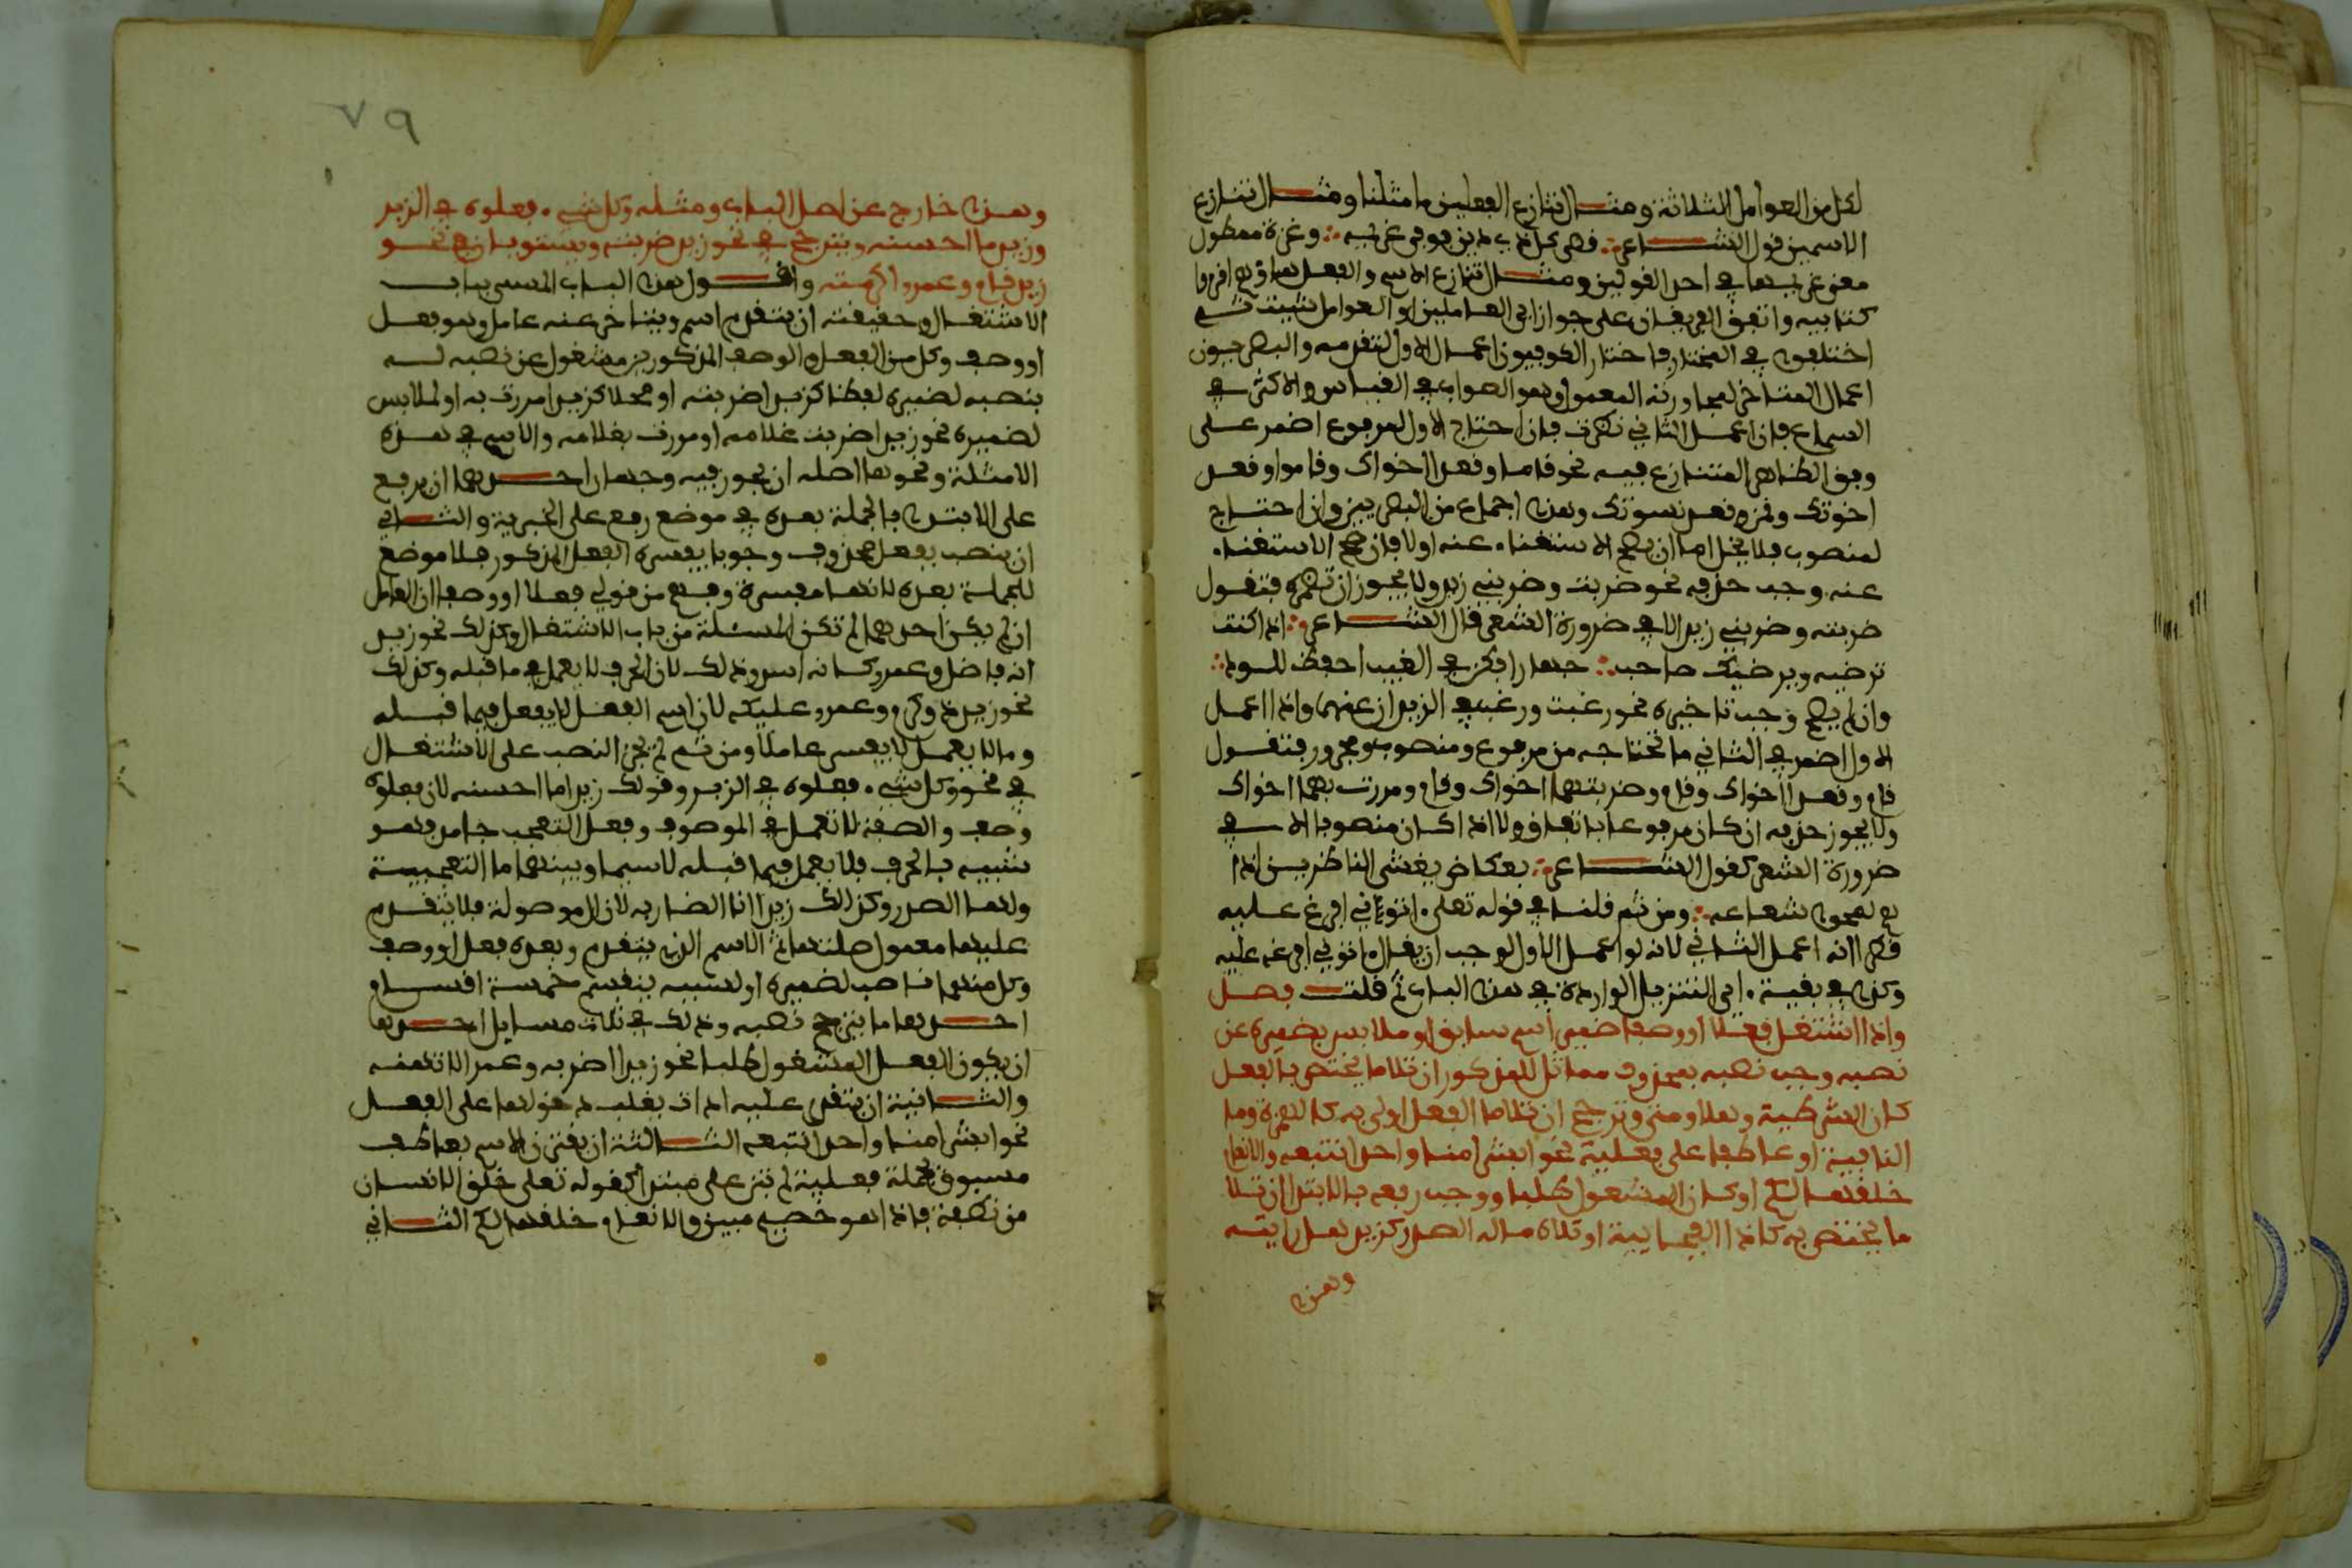 لكل من العوامل الثلاثة ومثال تنازع الفعلين ما مثلنا ومثال تنازع
الاسمين قول الشاعر ∴ قضى كل ذي دين فوفى غريمه ∴ وعزة ممطول
معنى غريمها في احد القولين ومثال تنازع الاسم والفعل هاؤم اقرءوا
كتابيه واتفق الفريقان على جواز اي العاملين او العوامل شيت ثم
اختلفوا في المختار فاختار الكوفيون اعمال الاول لتقدمه والبصريون
اعمال المتاخر لمجاورته المعمول وهو الصواب في القياس والاكثر في
السماع فاذا اعمل الثاني نظرت فان احتاج الاول لمرفوع اضمر على
وفق الظاهر المتنازع فيه نحو قاما وقعد اخواك وقاموا وقعد
اخوتك وقمن وقعد نسوتك وهذا اجماع من البصريين وان احتاج
لمنصوب فلا يخل اما ان يصح الاستغناء عنه اولا فان صح الاستغناء
عنه وجب حذفه نحو ضربت وضربني زيد ولا يجوز ان تضمره فتقول
ضربته وضربني زيد الا في ضرورة الشعر قال الشاعر ∴ اذا كنت
ترضيه ويرضيك صاحب ∴ جهارا فكن في الغيب احفظ للود ∴
وان لم يصح وجب تاخيره نحو رغبت ورغب في الزيدان عنهما واذا اعمل
الاول اضمر في الثاني ما تحتاجه من مرفوع ومنصوب ومجرور فتقول
قام وقعدا اخواك وقام وضربتهما اخواك وقام ومررت بهما اخواك
ولا يجوز حذفه ان كان مرفوعا باتفاق ولا اذا كان منصوبا الا في
ضرورة الشعر كقول الشاعر ∴ بعكاظ يغشي الناظرين اذا
هم لمحوا شعاعه ∴ ومن ثم قلنا في قوله تعلى اتوني افرغ عليه
قطرا انه اعمل الثاني لانه لو اعمل الاول لوجب ان يقال اتوني افرغه عليه
وكذا في بقية اي التنزيل الواردة في هذا الباب ثم قلت فصل
واذا اشتغل فعلا او وصفا ضمير اسم سابق او ملابس بضميره عن
نصبه وجب نصبه بمحذوف مماثل للمذكور ان تلا ما يختص بالفعل
كان الشرطية وهلا ومتى وترجح ان تلا ما الفعل اولى به كالهمزة وما
النافية او عاطفا على فعلية نحو ابشرا منا واحدا نتبعه والانعام
خلقها لكم او كان المشغول طلبا ووجب رفعه بالابتدا ان تلا
ما يختص به كاذا الفجايية او تلاه ماله الصدر كزيد هل رايته
وهذا
٧٩
وهذا خارج عن اصل الباب ومثله وكل شيء فعلوه في الزبر
وزيد ما احسنه ويترجح في نحو زيد ضربته ويستويان في نحو
زيد قام وعمرو اكرمته واقول هذا الباب المسمى بباب
الاشتغال وحقيقته ان يتقدم اسم ويتاخر عنه عامل وهو فعل
او وصف وكل من الفعل والوصف المذكورين مشغول عن نصبه له
بنصبه لضميره لفظا كزيدا ضربته او محلا كزيدا مررت به او لملابس
لضميره نحو زيدا ضربت غلامه او مررت بغلامه والاسم في هذه
الامثلة ونحوها اصله ان يجوز فيه وجهان احدهما ان يرفع
على الابتدا فالجملة بعده في موضع رفع على الخبرية والثاني
ان ينصب بفعل محذوف وجوبا يفسره الفعل المذكور فلا موضع
للجملة بعده لانها مفسرة وفهم من قولي فعلا او وصفا ان العامل
ان لم يكن احدهما لم تكن المسئلة من باب الاشتغال وكذلك نحو زيد
انه فاضل وعمرو كانه اسد وذلك لان الحرف لا يعمل في ما قبله وكذلك
نحو زيد دراكه وعمرو عليكه لان اسم الفعل لا يعمل فيما قبله
وما لا يعمل لا يفسر عاملا ومن ثم لم يجز النصب على الاشتغال
في نحو وكل شيء فعلوه في الزبر وقولك زيد ما احسنه لان فعلوه
وصف والصفة لا تعمل في الموصوف وفعل التعجب جامد فهو
شبيه بالحرف فلا يعمل فيما قبله لاسيما وبينهما ما التعجبية
ولها الصدر وكذلك زيد انا الضاربه لان ال موصولة فلا يتقدم
عليها معمول صلتها ثم الاسم الذي يتقدم وبعده فعل او وصف
وكل منهما ناصب لضميره او لسببيه ينقسم خمسة اقسام
احدها ما يترجح نصبه وذلك في ثلاث مسايل احدها
ان يكون الفعل المشغول طلبا نحو زيدا اضربه وعمرا لا تهنه
والثانية ان يتقدم عليه اداة يغلب دخولها على الفعل
نحو ابشرا منا واحدا نتبعه الثالثة ان يقترن الاسم بعاطف
مسبوق بجملة فعلية لم تبن على مبتدا كقوله تعلى خلق الانسان
من نطفة فاذا هو خصيم مبين والانعام خلقها لكم الثاني